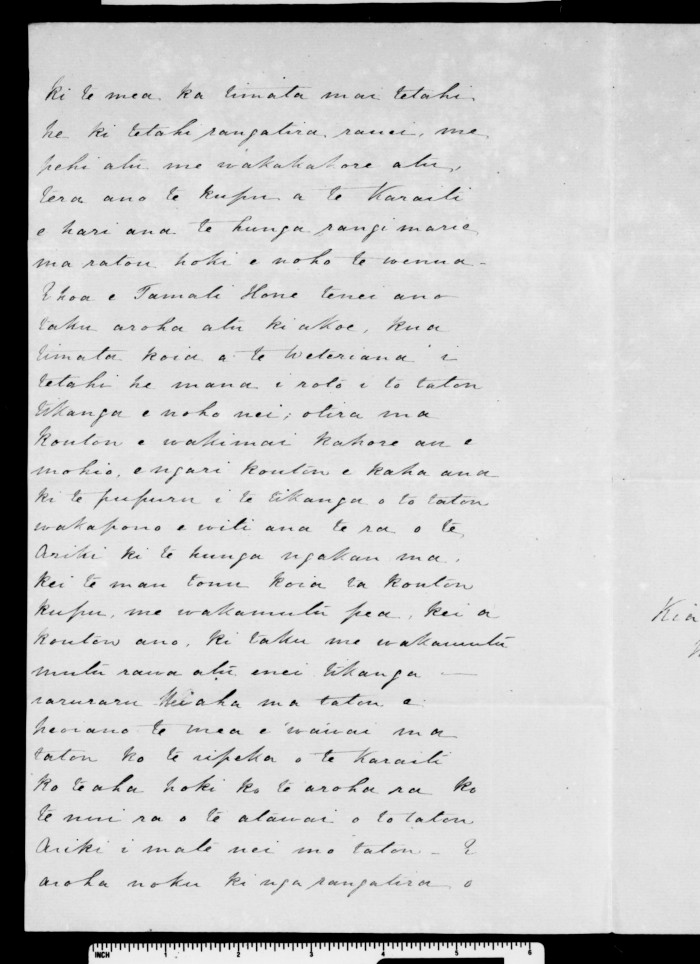 ki te mea ka timata mai tetahi
he ki tetahi rangatira ranei, me
pehi atu me wakakahore atu,
tera ano te kupu a te Karaiti
e hari ana te hunga rangimarie
ma ratou hoki e noho te wenua -
E hoa e Tamati Hone tenei ano
taku aroha atu ki akoe, kua
timata koia a te Weteriana i
tetahi he mana i roto i to tatou
tikanga e noho nei; otira ma
koutou e wakimai kahore au e
mohio, engari koutou e kaha ana
ki te pupuru i te tikanga o to tatou
wakapono e witi ana te ra o te
Ariki ki te hunga ngakau ma,
kei te mau tonu koia ra koutou
kupu, me wakamutu pea, kei a
koutou ano, ki taku me wakamutu
mutu rawa atu enei tikanga —
raruraru Kiaha ma tatou e
te mea e wawai ma
tatou ko te ripeka o te Karaiti
ko teaha hoki ko te aroha ra ko
te nui ra o te atawai o to tatou
Ariki i mate nei mo tatou - E
aroha noku ki nga rangatira o
Kia